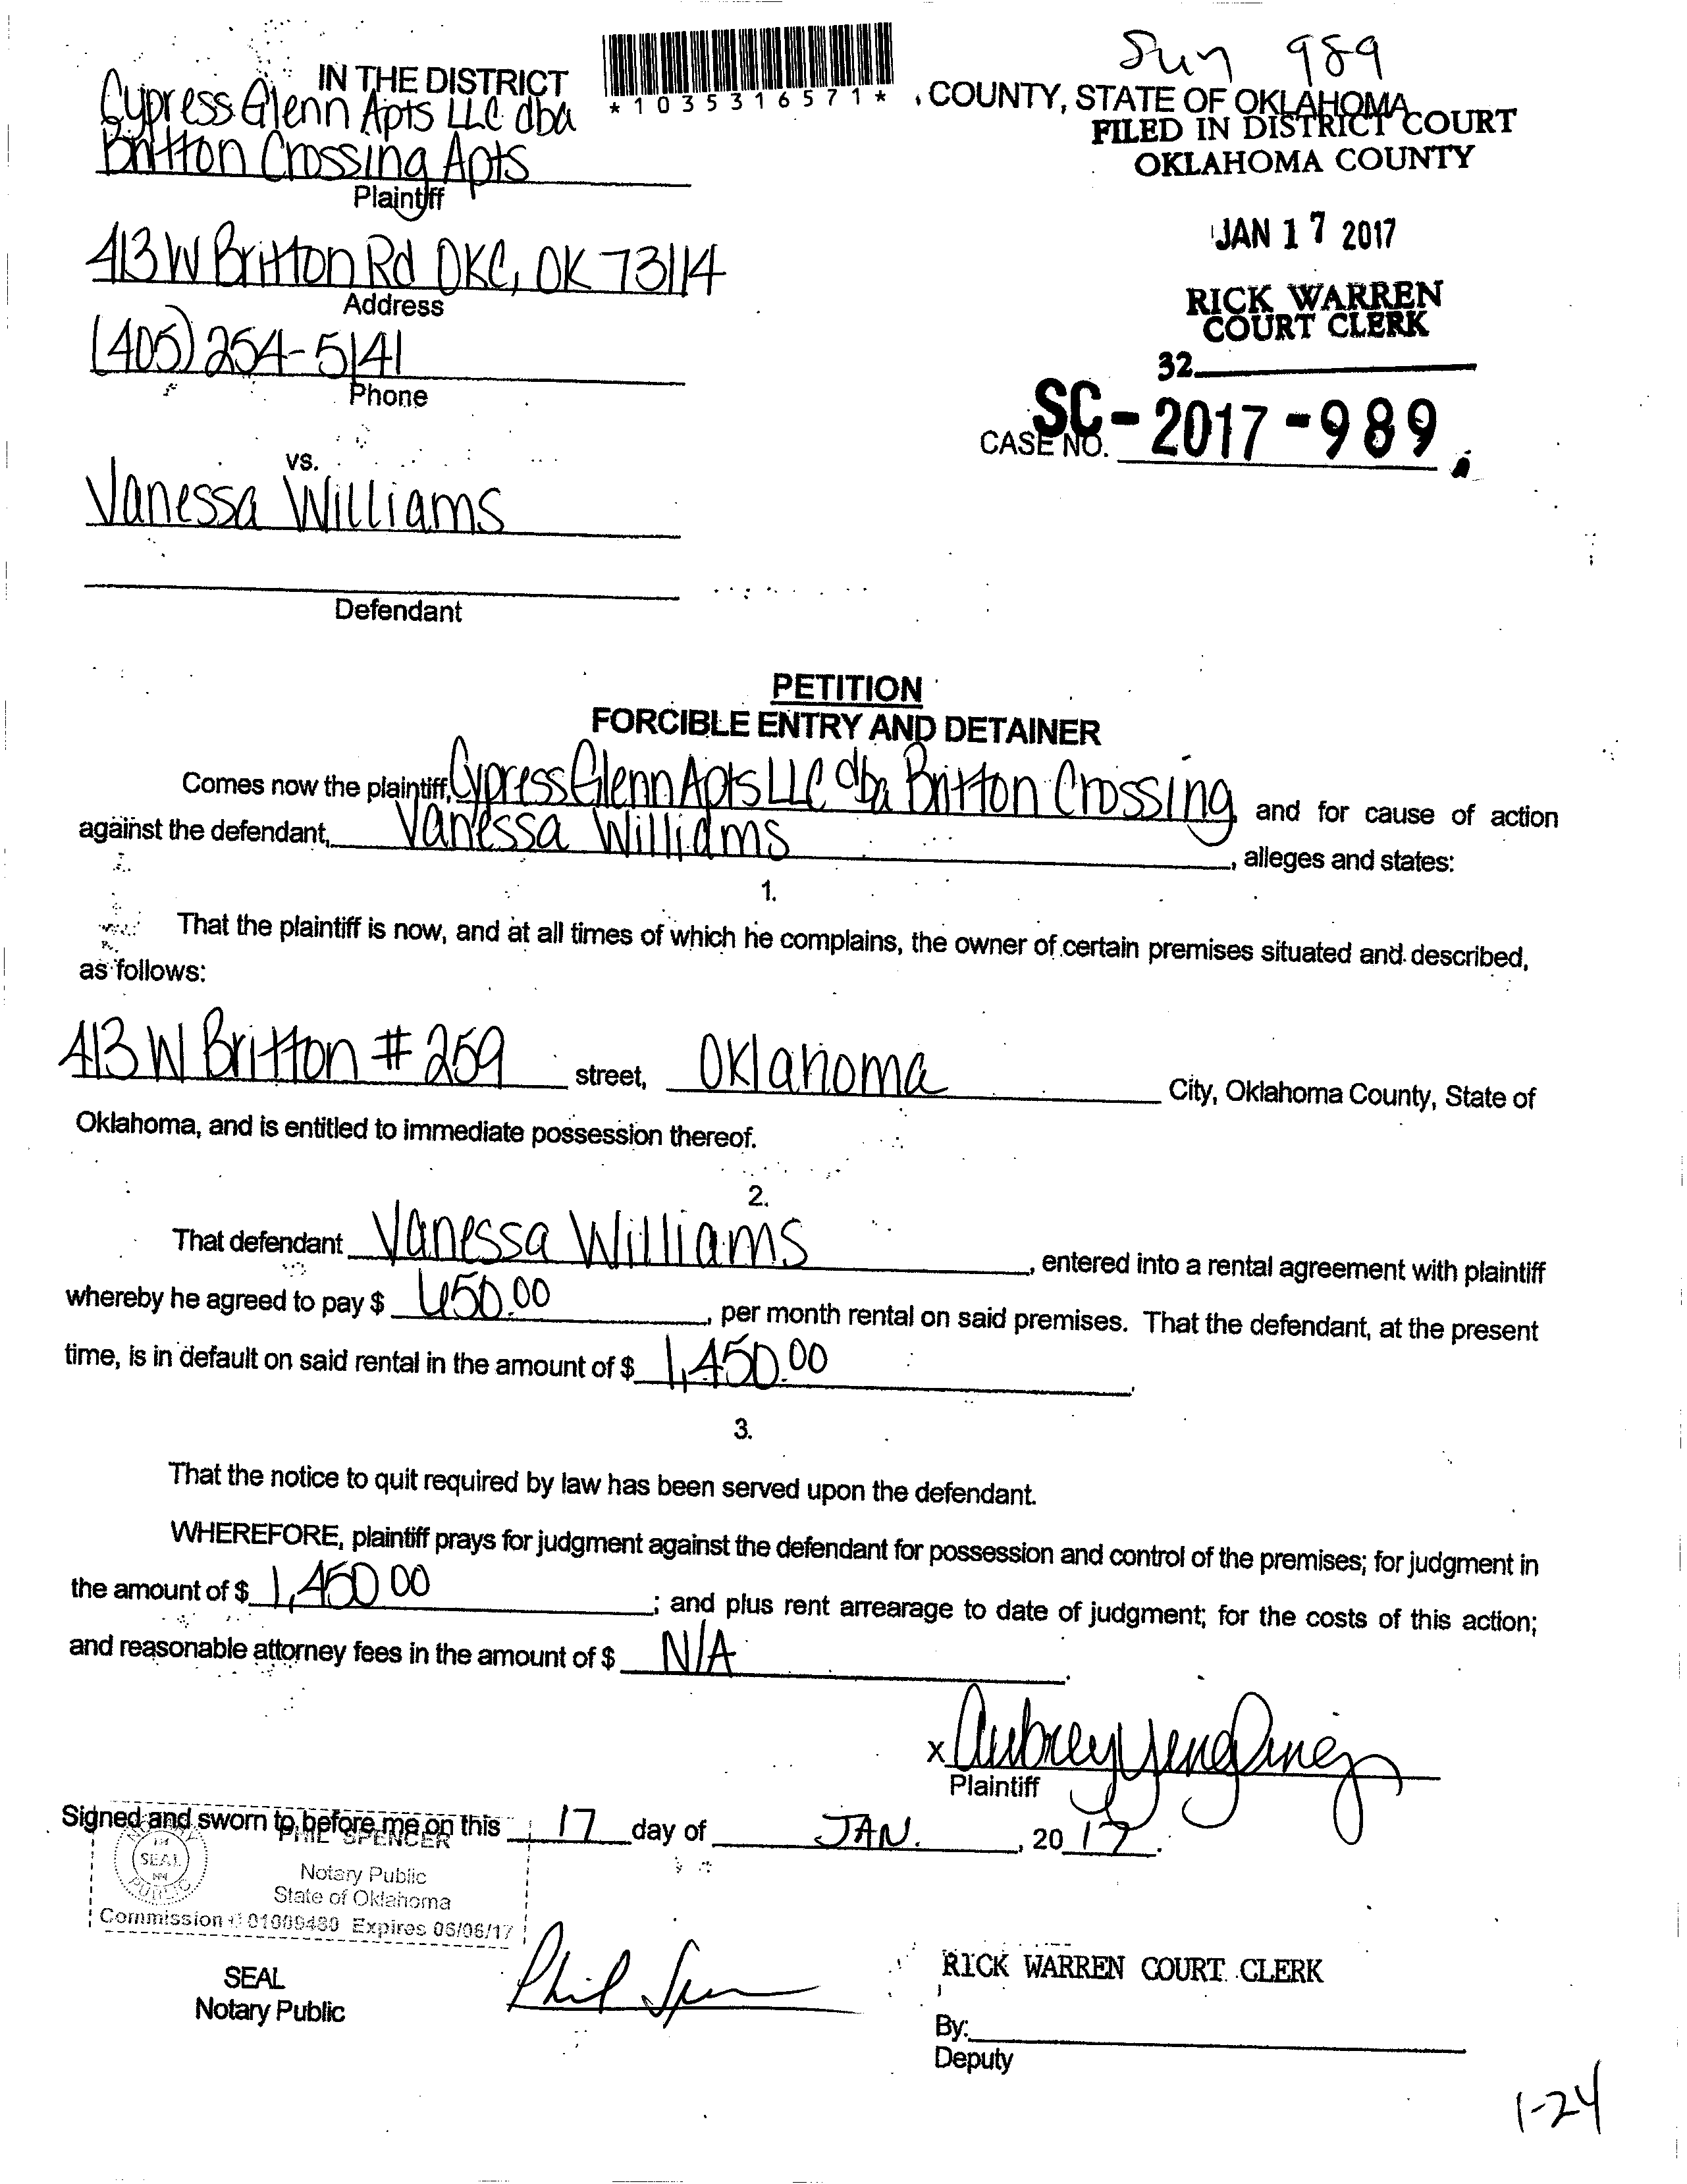 Sun 989
IN THE DISTRICT
*1035316571*
, COUNTY, STATE OF OKLAHOMA
Cypress Glenn Apts LLC dba
Britton Crossing Apts
Plaintiff
FILED IN DISTRICT COURT
OKLAHOMA COUNTY
JAN 17 2017
413 W Britton Rd OKC, OK 73114
Address
RICK WARREN
COURT CLERK
(405) 254-5141
Phone
32
CASE NO. SC-2017-989
vs.
Vanessa Williams
Defendant
PETITION
FORCIBLE ENTRY AND DETAINER
Comes now the plaintiff, Cypress Glenn Apts LLC dba Britton Crossing and for cause of action
against the defendant, Vanessa Williams, alleges and states:
1.
That the plaintiff is now, and at all times of which he complains, the owner of certain premises situated and described,
as follows:
413 W Britton # 259 street, Oklahoma City, Oklahoma County, State of
Oklahoma, and is entitled to immediate possession thereof.
2.
That defendant Vanessa Williams, entered into a rental agreement with plaintiff
whereby he agreed to pay $ 650.00, per month rental on said premises. That the defendant, at the present
time, is in default on said rental in the amount of $ 1,450.00.
3.
That the notice to quit required by law has been served upon the defendant.
WHEREFORE, plaintiff prays for judgment against the defendant for possession and control of the premises; for judgment in
the amount of $ 1,450.00; and plus rent arrearage to date of judgment; for the costs of this action;
and reasonable attorney fees in the amount of $ N/A.
x Aubrey
Plaintiff
Signed and sworn to before me on this 17 day of JAN., 2017.
PHIL SPENCER
SEAL
PUBLIC
Notary Public
State of Oklahoma
Commission # 01009480 Expires 06/06/17
SEAL
Notary Public
Phil Spencer
RICK WARREN COURT CLERK
By:
Deputy
1-24